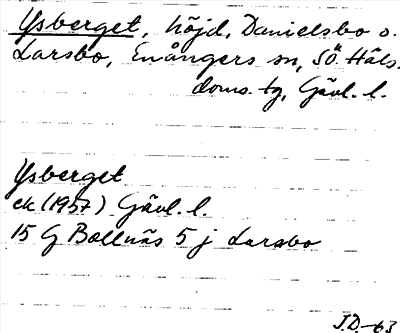 Ysberget, höjd, Danielsbo o.
Larsbo, Enångers sn, SÖ. Häls.
doms. tg, Gävl. l.
Ysberget
ek (1957) Gävl. l.
15 G Bollnäs 5 j Larsbo
J.D.-63